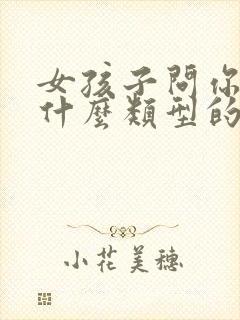 女孩子問你
什麼類型的
小花美穗